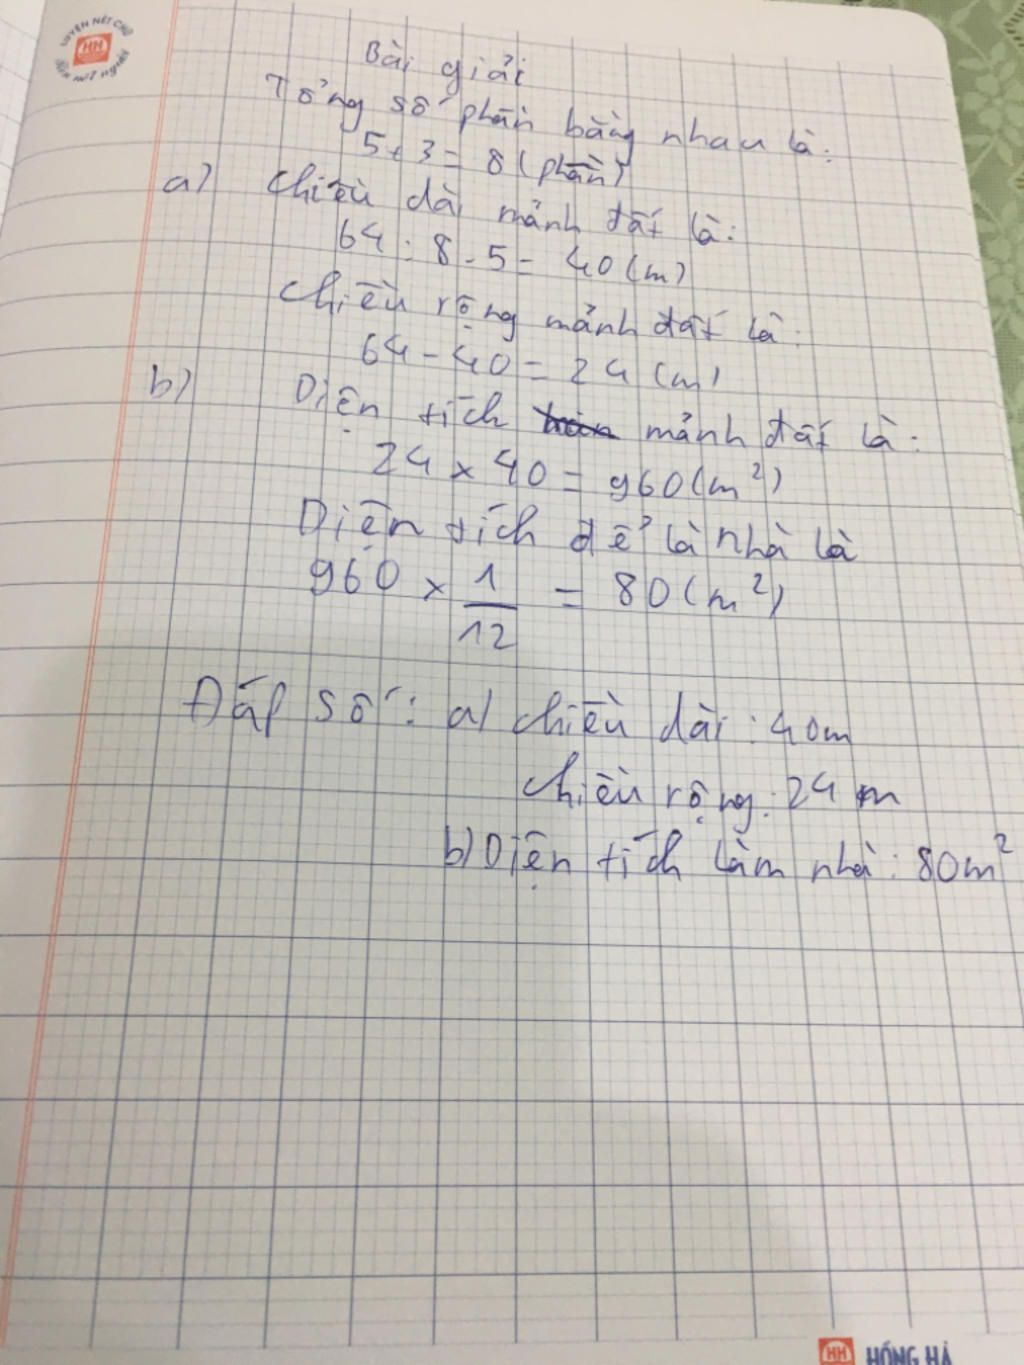 LUYỆN NÉT CHỮ
HH
Rèn nết người
Bài giải
Tổng số phần bằng nhau là:
5 + 3 = 8 (phần)
a) Chiều dài mảnh đất là:
64 : 8 . 5 = 40 (m)
Chiều rộng mảnh đất là:
64 - 40 = 24 (m)
b) Diện tích mảnh đất là:
24 x 40 = 960 (m²)
Diện tích để là nhà là
960 x 1/12 = 80 (m²)
Đáp số: a) Chiều dài: 40m
Chiều rộng: 24 m
b) Diện tích làm nhà: 80m²
HH HỒNG HÀ